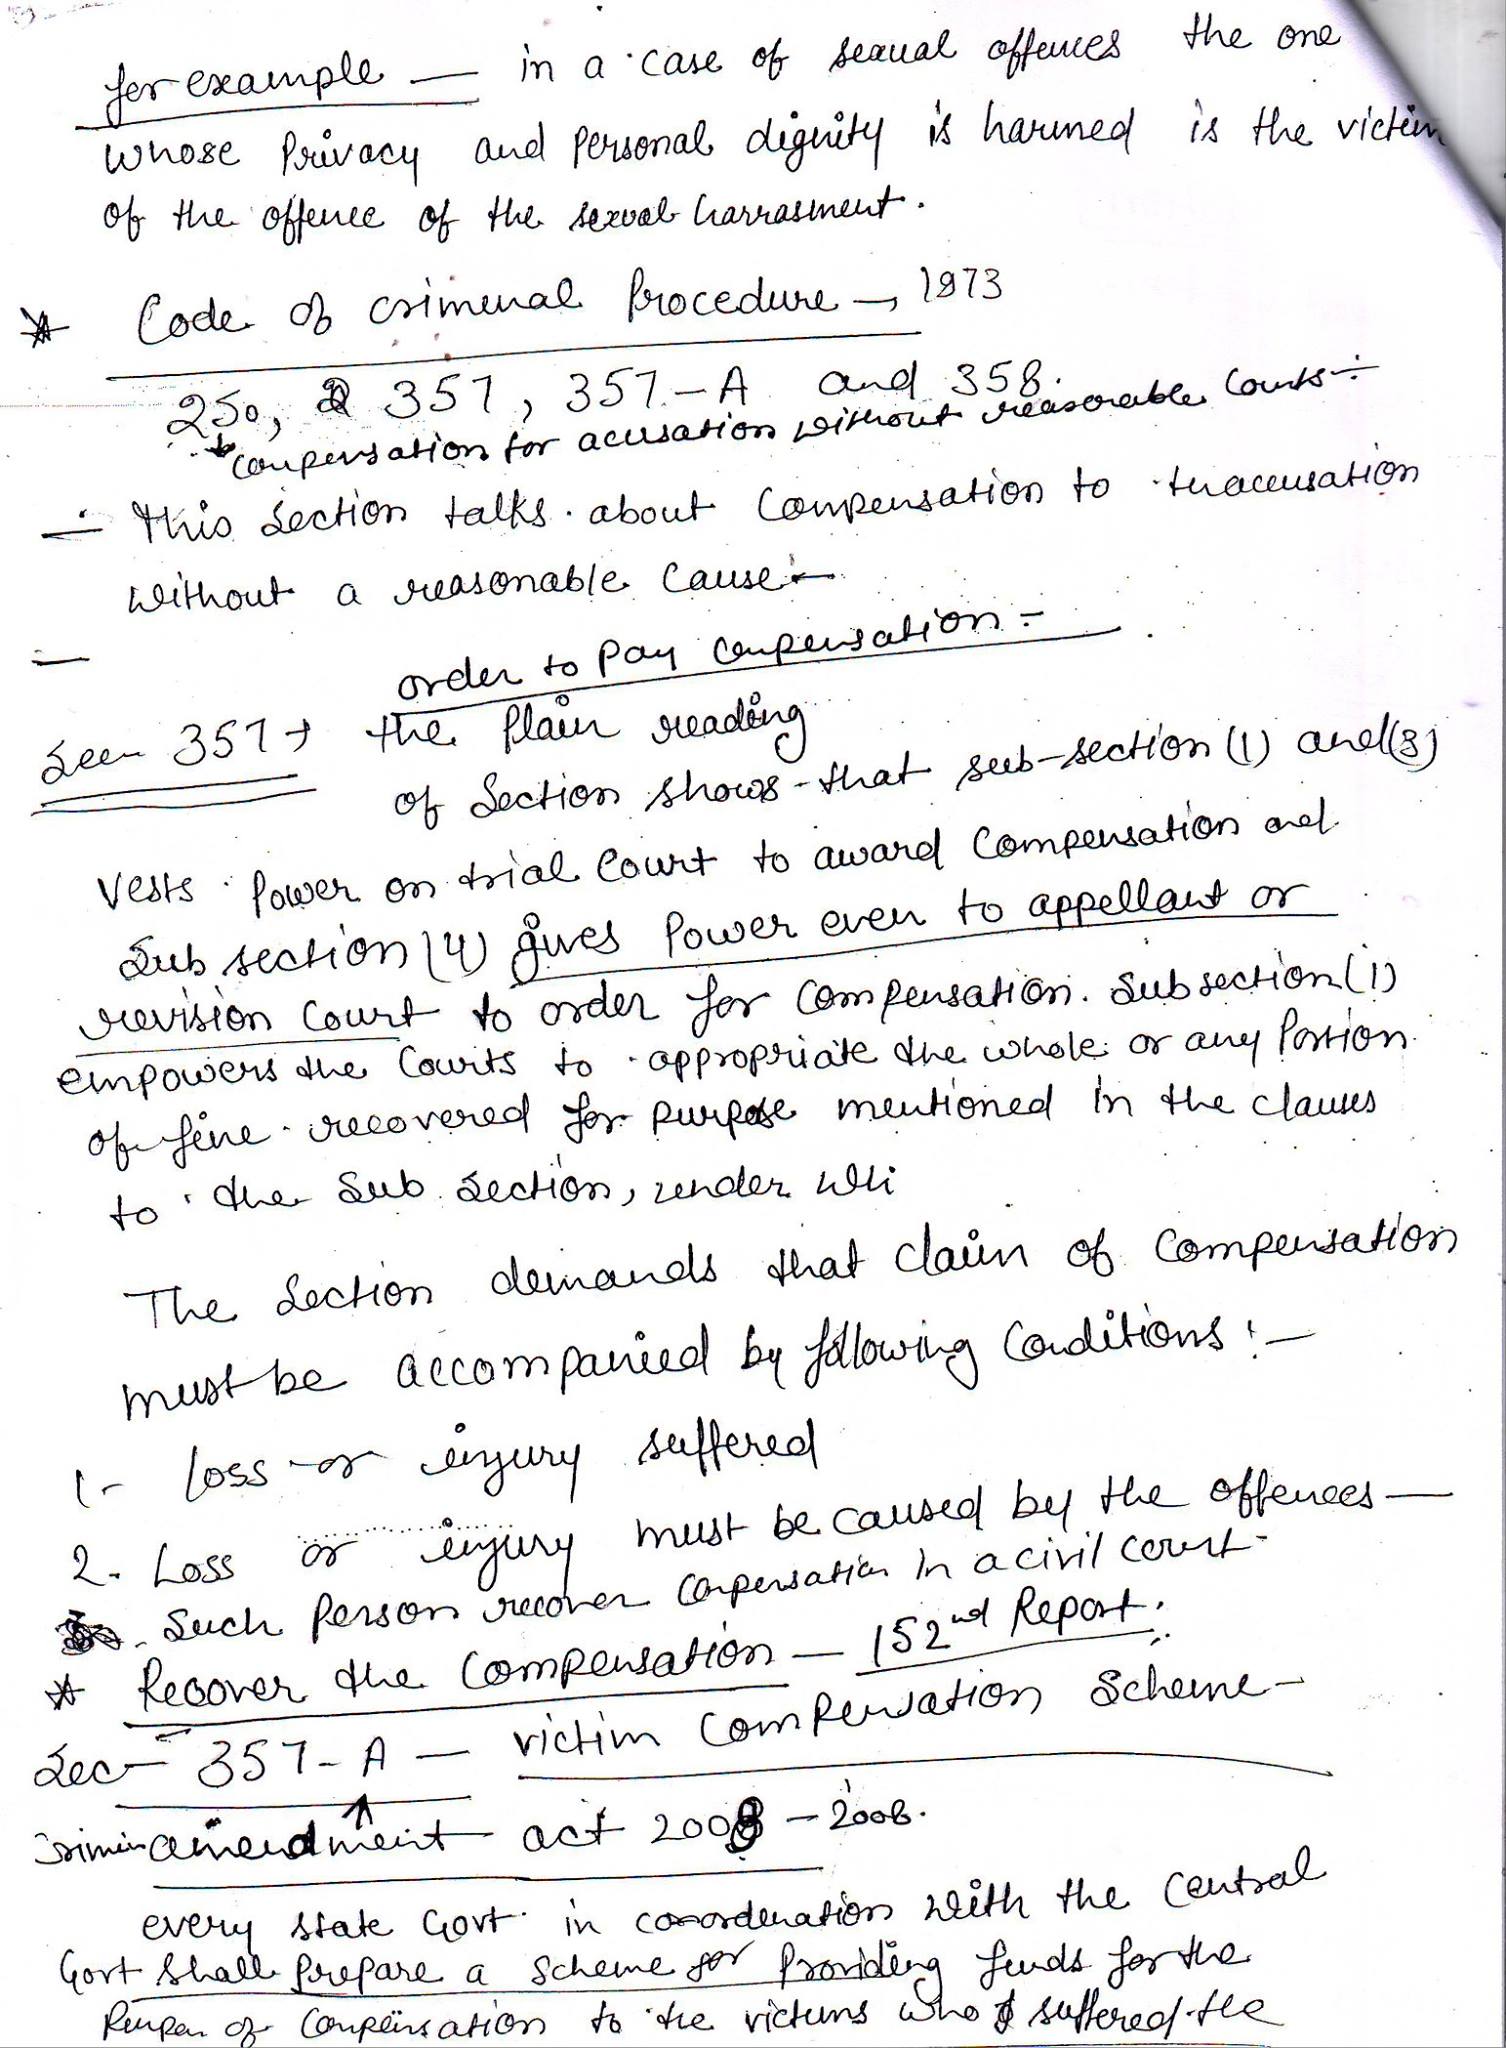 for example — in a case of sexual offences the one
whose Privacy and personal dignity is harmed is the victim
of the offence of the sexual harrasment.
* Code of criminal Procedure → 1973
250, 357, 357-A and 358.
Compensation for acusation without reasonable Courts :-
— This Section talks about compensation to
without a reasonable cause :-
—
order to Pay compensation :-
Sec- 357 → the Plain reading
of Section shows that sub-section (1) and (3)
vests Power on trial Court to award Compensation and
Sub section (4) gives Power even to appellant or
revision Court to order for Compensation. Subsection (1)
empowers the Courts to appropriate the whole or any Portion
of fine recovered for purpose mentioned in the clauses
to the Sub Section, under whi
The Section demands that claim of Compensation
must be accompanied by following Conditions :-
1- Loss or injury suffered
2- Loss or injury must be caused by the offences —
Such Person recover Compensation in a civil court-
* Recover the Compensation — 152nd Report :
Sec- 357-A — victim Compensation Scheme -
amendment act 2008 - 2008.
every state Govt in coordination with the Central
Govt shall prepare a Scheme for Providing funds for the
of Compensation to the victims who suffered the